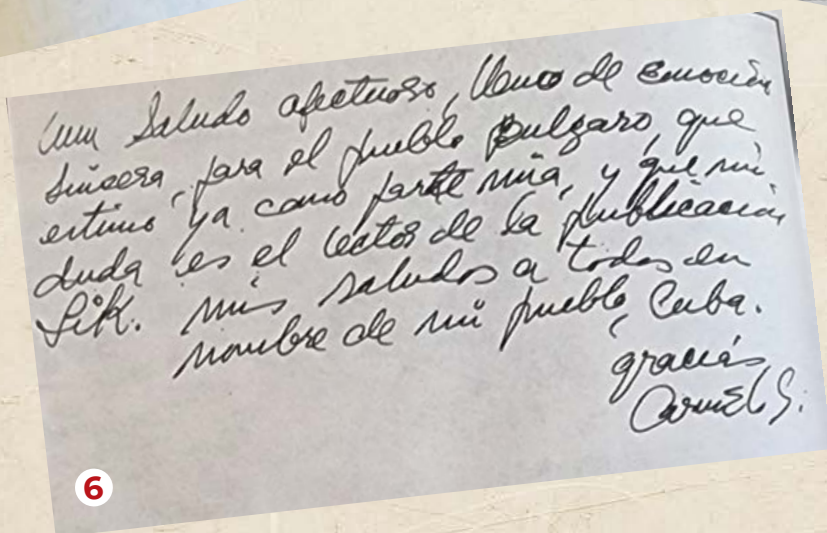 Un Saludo afectuoso, lleno de emoción
sincera, para el pueblo Bulgaro, que
estimo ya como parte mía, y que sin
duda es el lector de la publicación
Lik. mis saludos a todos en
nombre de mi pueblo, Cuba.
gracias
6